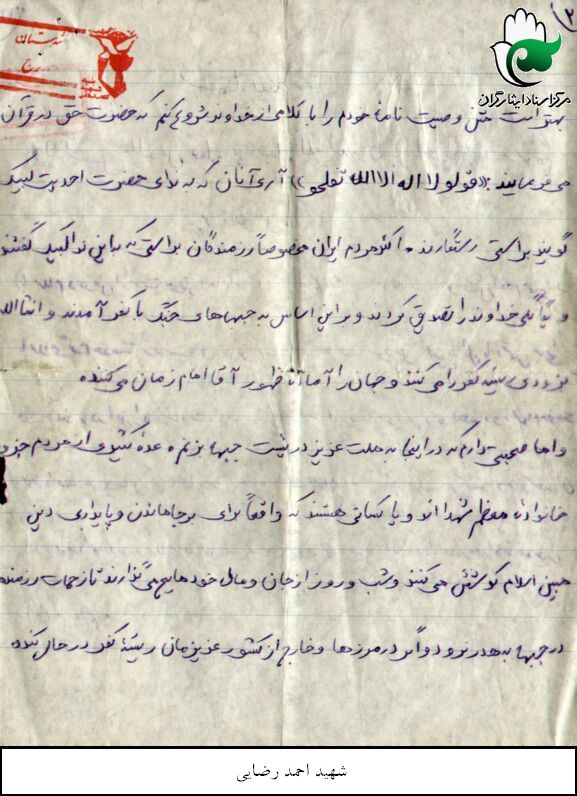 (۲
مرکز اسناد ایثارگران
بهتر است متن وصیت نامهٔ خودم را با کلامی از خداوند شروع کنم که حضرت حق در قرآن
می فرمایند: «قولو لا اله الا الله تفلحو» آری آنان که به ندای حضرت احدیت لبیک
گویند براستی رستگارند. اکثر مردم ایران مخصوصاً رزمندگان براستی که به این ندا لبیک گفتند
و یگانگی خداوند را تصدیق کردند و بر این اساس به جبهه های جنگ با کفر آمدند و انشاالله
بزودی ریشه کفر را می کنند و جهان را آماده ظهور آقا امام زمان می کنند
و اما صحبتی دارم که در اینجا به ملت عزیز در پشت جبهه بزنم. عدهٔ کثیری از مردم جزو
خانوادهٔ معظم شهدا اند و یا کسانی هستند که واقعاً برای بر جا ماندن و پایداری دین
مبین اسلام کوشش می کنند و شب و روز از جان و مال خود مایه می گذارند تا زحمات رزمنده
در جبهه به هدر نرود و اگر در مرزها و خارج از کشور عزیزمان ریشهٔ کفر در حال کنده
شهید احمد رضایی